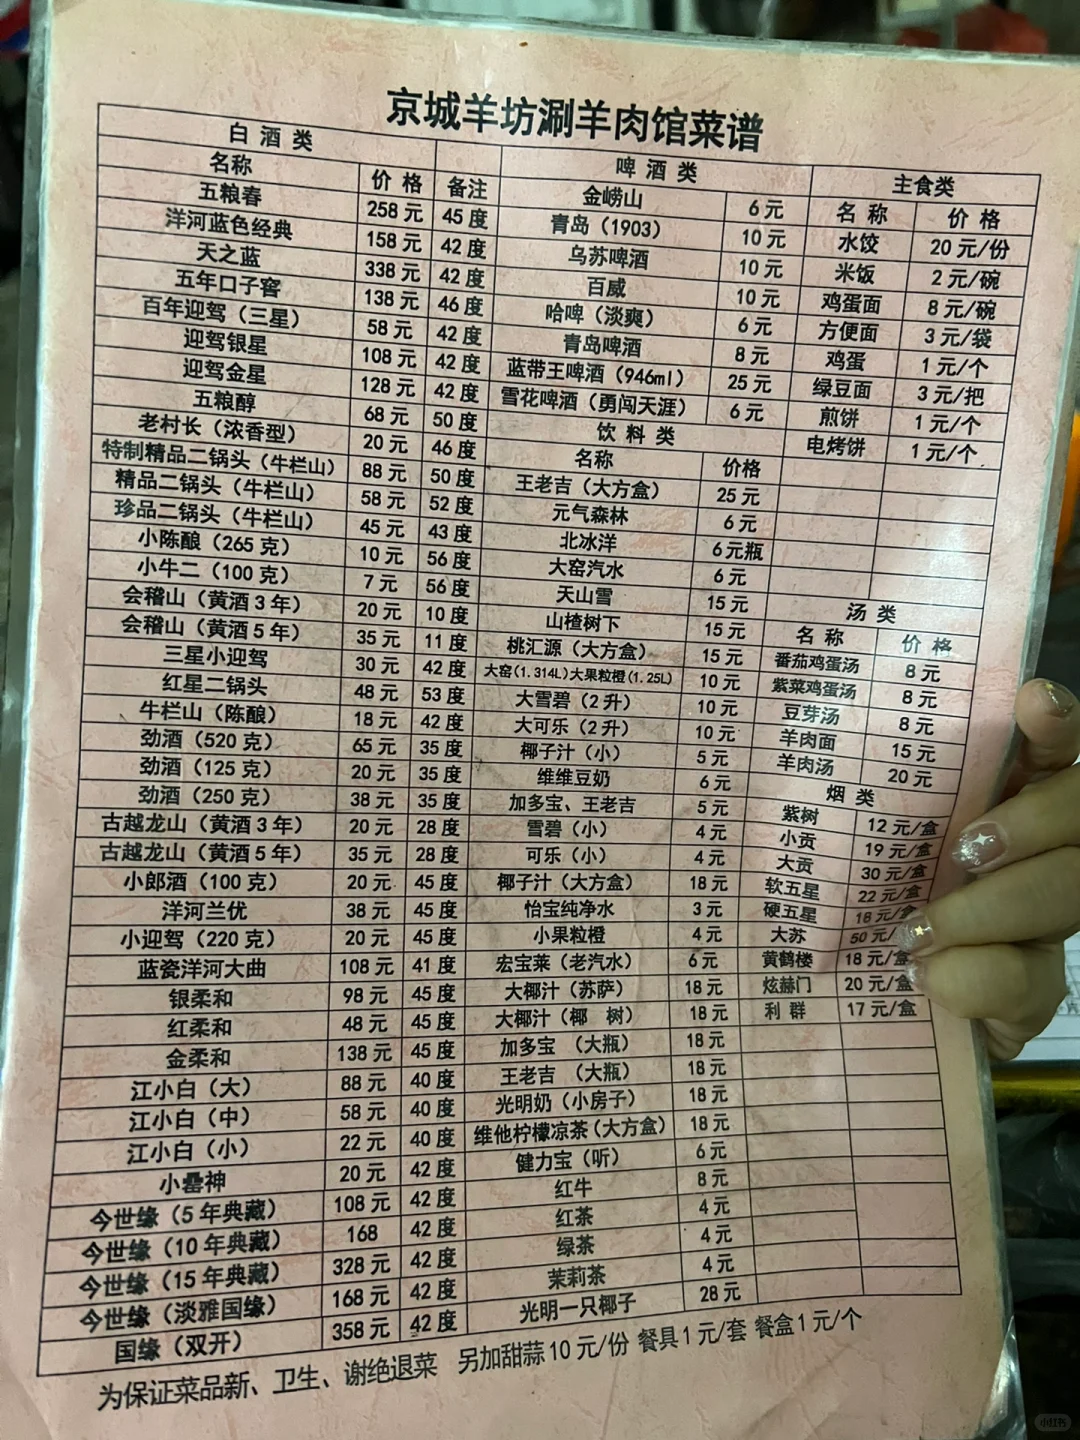 京城羊坊涮羊肉馆菜谱
白 酒 类
名称 价 格 备注
五粮春 258元 45度
洋河蓝色经典 158元 42度
天之蓝 338元 42度
五年口子窖 138元 46度
百年迎驾（三星） 58元 42度
迎驾银星 108元 42度
迎驾金星 128元 42度
五粮醇 68元 50度
老村长（浓香型） 20元 46度
特制精品二锅头（牛栏山） 88元 50度
精品二锅头（牛栏山） 58元 52度
珍品二锅头（牛栏山） 45元 43度
小陈酿（265克） 10元 56度
小牛二（100克） 7元 56度
会稽山（黄酒3年） 20元 10度
会稽山（黄酒5年） 35元 11度
三星小迎驾 30元 42度
红星二锅头 48元 53度
牛栏山（陈酿） 18元 42度
劲酒（520克） 65元 35度
劲酒（125克） 20元 35度
劲酒（250克） 38元 35度
古越龙山（黄酒3年） 20元 28度
古越龙山（黄酒5年） 35元 28度
小郎酒（100克） 20元 45度
洋河兰优 38元 45度
小迎驾（220克） 20元 45度
蓝瓷洋河大曲 108元 41度
银柔和 98元 45度
红柔和 48元 45度
金柔和 138元 45度
江小白（大） 88元 40度
江小白（中） 58元 40度
江小白（小） 22元 40度
小罍神 20元 42度
今世缘（5年典藏） 108元 42度
今世缘（10年典藏） 168 42度
今世缘（15年典藏） 328元 42度
今世缘（淡雅国缘） 168元 42度
国缘（双开） 358元 42度
啤 酒 类
金崂山 6元
青岛（1903） 10元
乌苏啤酒 10元
百威 10元
哈啤（淡爽） 6元
青岛啤酒 8元
蓝带王啤酒（946ml） 25元
雪花啤酒（勇闯天涯） 6元
饮 料 类
名称 价格
王老吉（大方盒） 25元
元气森林 6元
北冰洋 6元瓶
大窑汽水 6元
天山雪 15元
山楂树下 15元
桃汇源（大方盒） 15元
大窑（1.314L）大果粒橙（1.25L） 10元
大雪碧（2升） 10元
大可乐（2升） 10元
椰子汁（小） 5元
维维豆奶 6元
加多宝、王老吉 5元
雪碧（小） 4元
可乐（小） 4元
椰子汁（大方盒） 18元
怡宝纯净水 3元
小果粒橙 4元
宏宝莱（老汽水） 6元
大椰汁（苏萨） 18元
大椰汁（椰 树） 18元
加多宝 （大瓶） 18元
王老吉 （大瓶） 18元
光明奶（小房子） 18元
维他柠檬凉茶（大方盒） 18元
健力宝（听） 6元
红牛 8元
红茶 4元
绿茶 4元
茉莉茶 4元
光明一只椰子 28元
主食类
名 称 价 格
水饺 20元/份
米饭 2元/碗
鸡蛋面 8元/碗
方便面 3元/袋
鸡蛋 1元/个
绿豆面 3元/把
煎饼 1元/个
电烤饼 1元/个
汤 类
名 称 价 格
番茄鸡蛋汤 8元
紫菜鸡蛋汤 8元
豆芽汤 8元
羊肉面 15元
羊肉汤 20元
烟 类
紫树 12元/盒
小贡 19元/盒
大贡 30元/盒
软五星 22元/盒
硬五星 18元/盒
大苏 50元/
黄鹤楼 18元/盒
炫赫门 20元/盒
利 群 17元/盒
为保证菜品新、卫生、谢绝退菜 另加甜蒜10元/份 餐具1元/套 餐盒1元/个
小红书